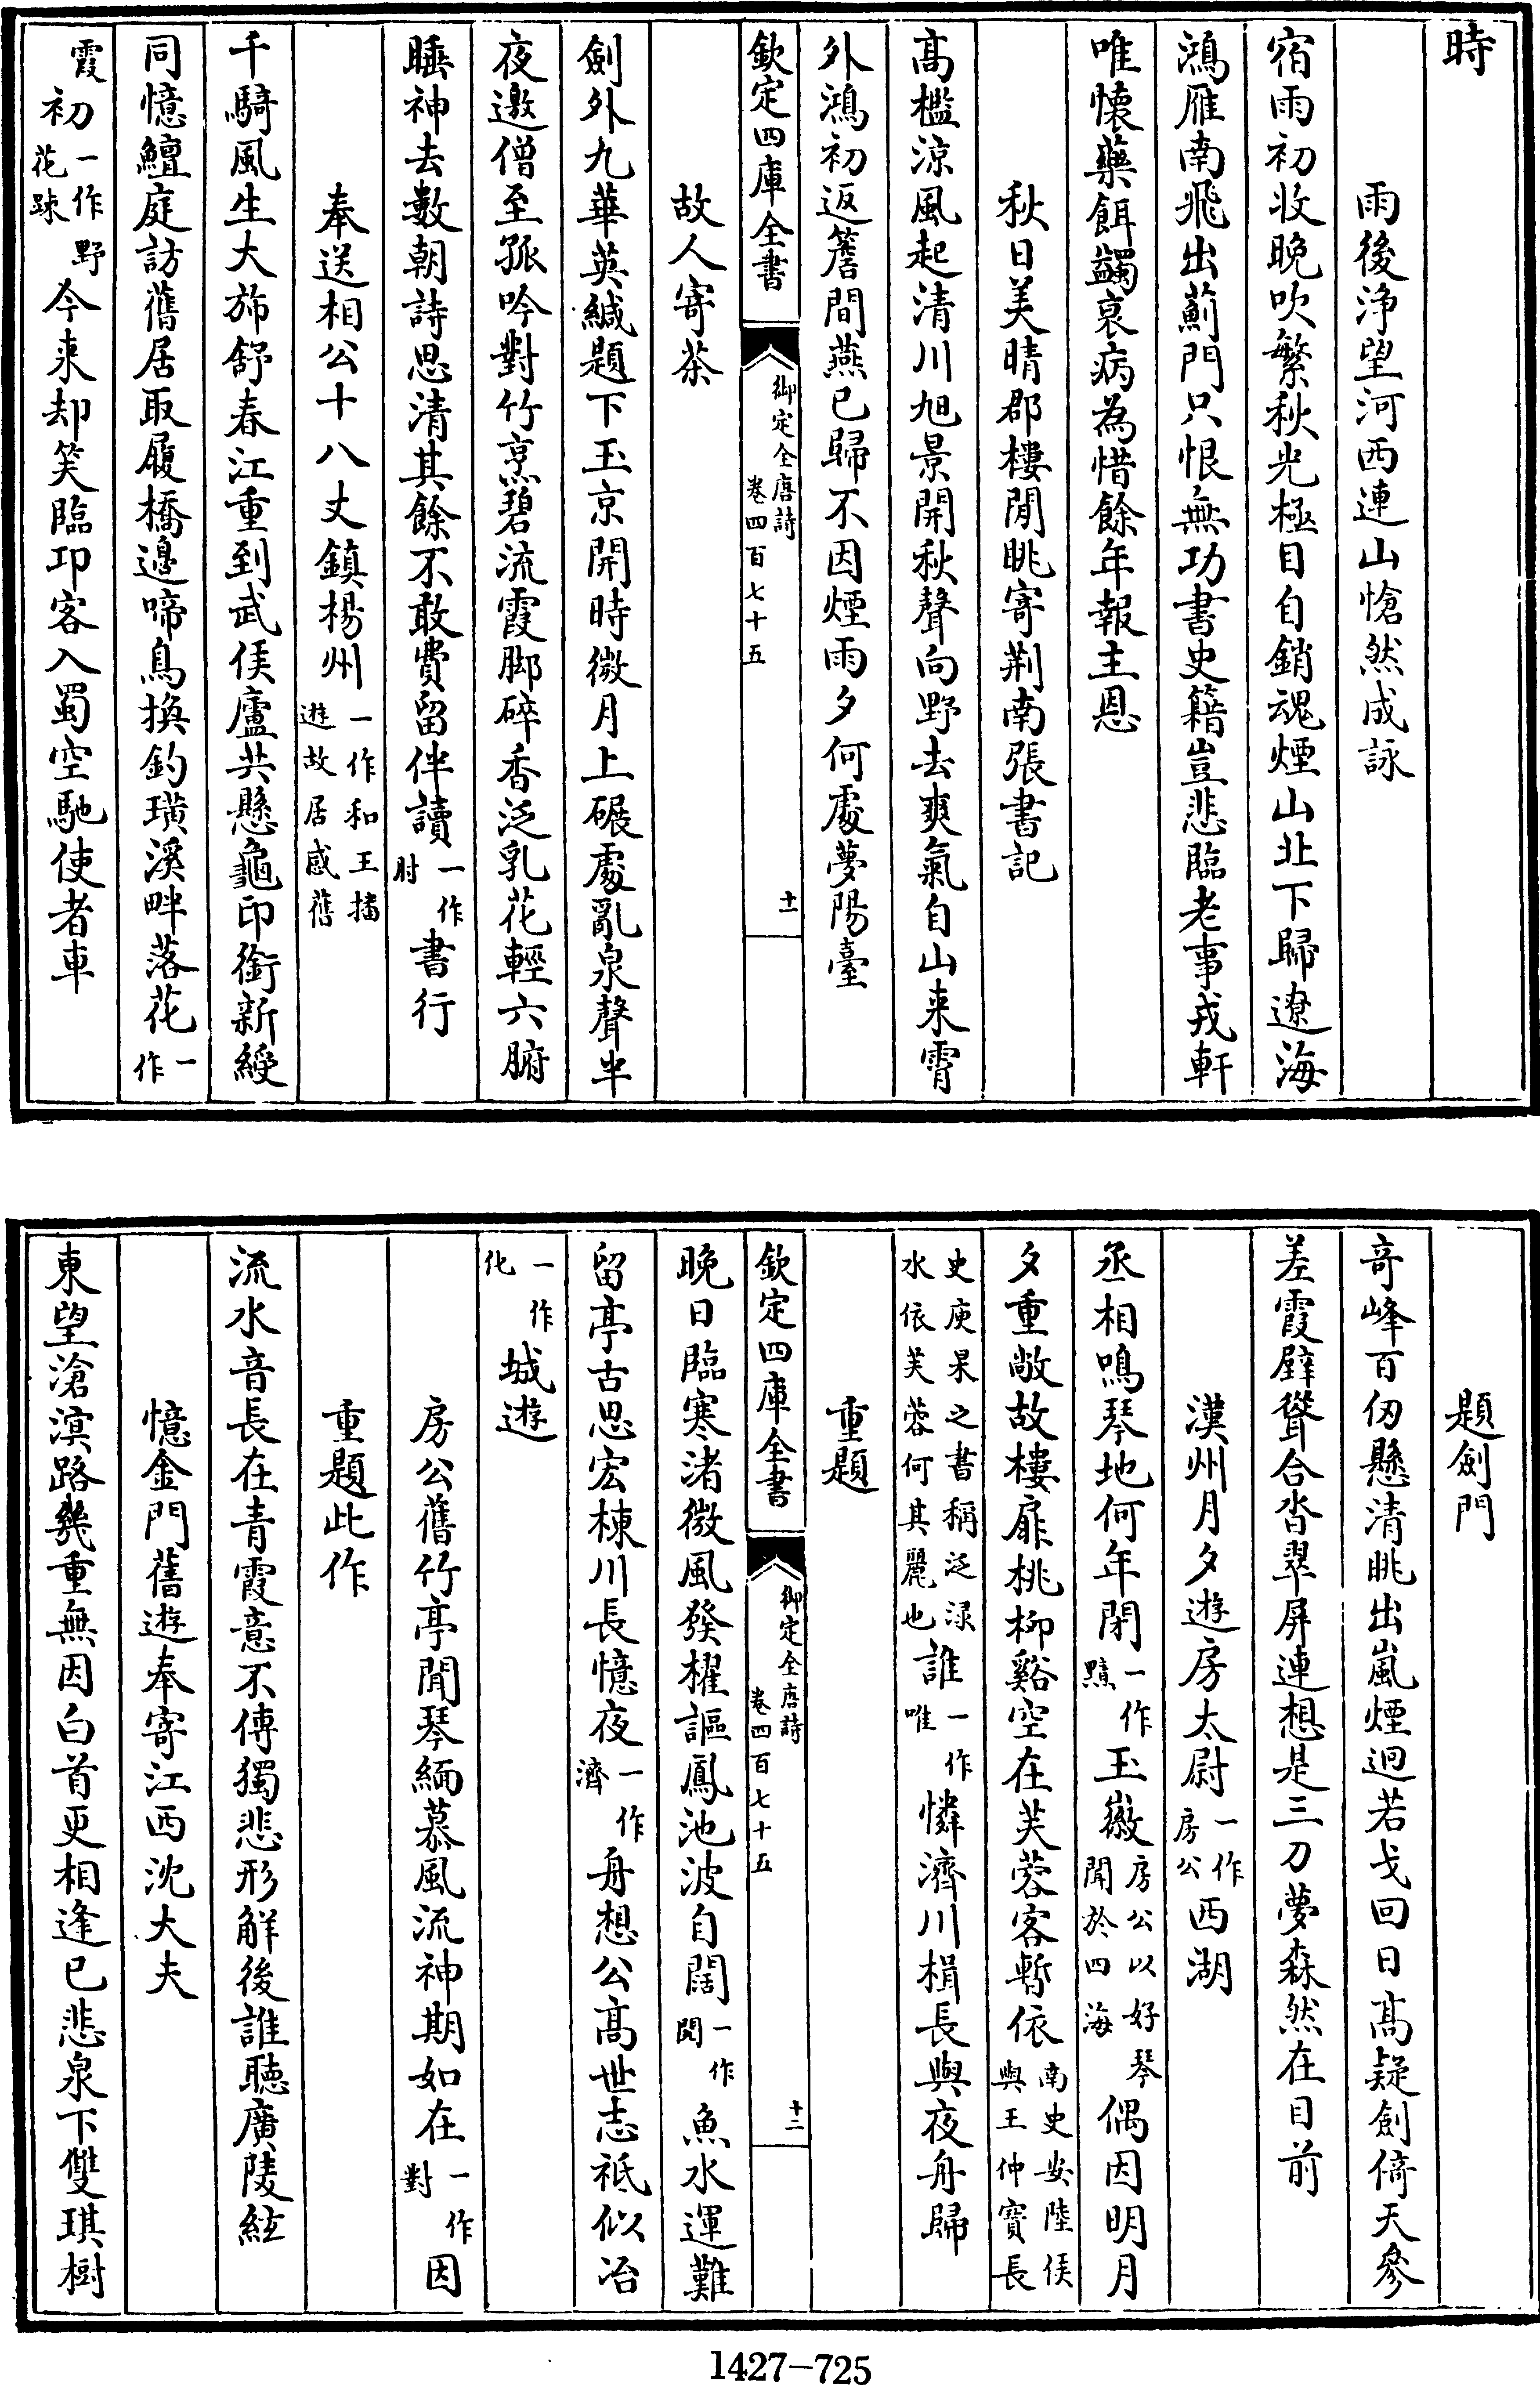 時
雨後淨望河西連山愴然成詠
宿雨初收晚吹繁秋光極目自銷魂煙山北下歸遼海
鴻雁南飛出薊門只恨無功書史籍豈悲臨老事戎軒
唯懷藥餌蠲衰病為惜餘年報主恩
秋日美晴郡樓閒眺寄荆南張書記
高檻涼風起清川旭景開秋聲向野去爽氣自山来霄
外鴻初返簷間燕已歸不因煙雨夕何處夢陽臺
欽定四庫全書
御定全唐詩
卷四百七十五
十一
故人寄茶
劍外九華英緘題下玉京開時微月上碾處亂泉聲半
夜邀僧至孤吟對竹烹碧流霞脚碎香泛乳花輕六腑
睡神去數朝詩思清其餘不敢費留伴讀一作肘書行
奉送相公十八丈鎮楊州一作和王播遊故居感舊
千騎風生大斾舒春江重到武侯廬共懸龜印銜新綬
同憶鱣庭訪舊居取履橋邊啼鳥換釣璜溪畔落花一作
霞初一作野花踈今来却笑臨邛客入蜀空馳使者車
題劍門
奇峰百仞懸清眺出嵐煙迥若戈回日高疑劍倚天參
差霞壁聳合沓翠屏連想是三刀夢森然在目前
漢州月夕遊房太尉一作房公西湖
丞相鳴琴地何年閉一作黯玉徽房公以好琴聞於四海偶因明月
夕重敞故樓扉桃柳谿空在芙蓉客暫依南史安陸侯與王仲寶長
史庾杲之書稱泛渌水依芙蓉何其麗也誰一作唯憐濟川楫長與夜舟歸
重題
欽定四庫全書
御定全唐詩
卷四百七十五
十二
晚日臨寒渚微風發櫂謳鳳池波自闊一作閱魚水運難
留亭古思宏棟川長憶夜一作濟舟想公高世志祗似冶
一作化城遊
房公舊竹亭聞琴緬慕風流神期如在一作對因
重題此作
流水音長在青霞意不傳獨悲形解後誰聴廣陵絃
憶金門舊遊奉寄江西沈大夫
東望滄溟路幾重無因白首更相逢已悲泉下雙琪樹
1427-725